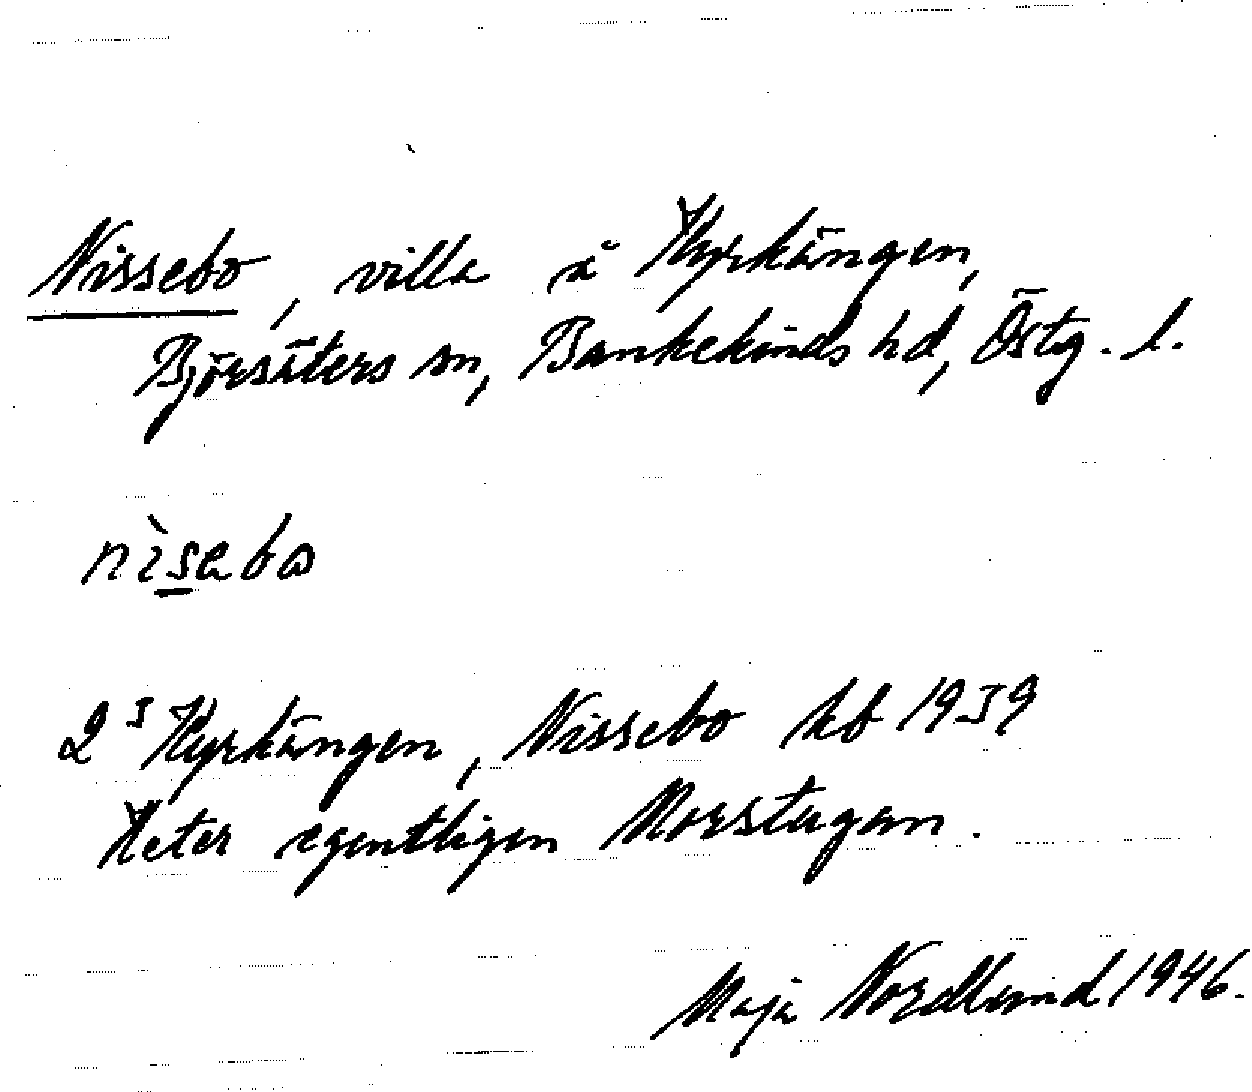 Nissebo, villa å Kyrkängen,
Björsäters sn, Bankekinds hd, Östg. l.
nìsəbo
2³ Kyrkängen, Nissebo kb 1939
Heter egentligen Morstugan.
Maja Nordlund 1946.